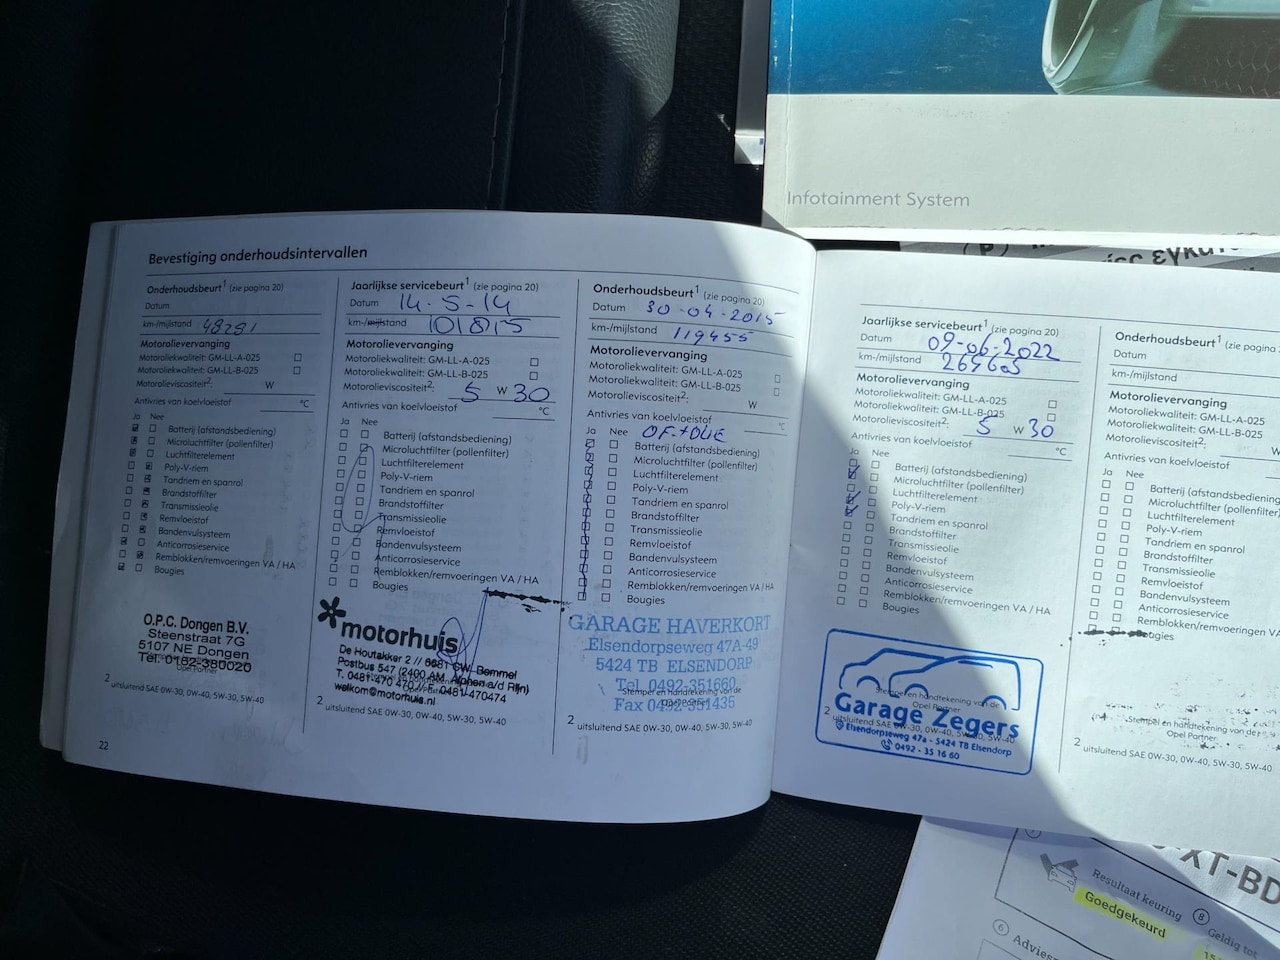 Infotainment System
Bevestiging onderhoudsintervallen
Onderhoudsbeurt¹ (zie pagina 20)
Datum
km-/mijlstand 48281
Motorolievervanging
Motoroliekwaliteit: GM-LL-A-025
Motoroliekwaliteit: GM-LL-B-025
Motorolieviscositeit²: W
Antivries van koelvloeistof °C
Ja Nee
Batterij (afstandsbediening)
Microluchtfilter (pollenfilter)
Luchtfilterelement
Poly-V-riem
Tandriem en spanrol
Brandstoffilter
Transmissieolie
Remvloeistof
Bandenvulsysteem
Anticorrosieservice
Remblokken/remvoeringen VA / HA
Bougies
O.P.C. Dongen B.V.
Steenstraat 7G
5107 NE Dongen
Tel. 0162-380020
Opel Partner
² uitsluitend SAE 0W-30, 0W-40, 5W-30, 5W-40
22
Jaarlijkse servicebeurt¹ (zie pagina 20)
Datum 14-5-14
km-/mijlstand 101815
Motorolievervanging
Motoroliekwaliteit: GM-LL-A-025
Motoroliekwaliteit: GM-LL-B-025
Motorolieviscositeit²: 5 W 30
Antivries van koelvloeistof °C
Ja Nee
Batterij (afstandsbediening)
Microluchtfilter (pollenfilter)
Luchtfilterelement
Poly-V-riem
Tandriem en spanrol
Brandstoffilter
Transmissieolie
Remvloeistof
Bandenvulsysteem
Anticorrosieservice
Remblokken/remvoeringen VA / HA
Bougies
motorhuis
De Houtakker 2 // 6681 CW Bemmel
Postbus 547 (2400 AM Alphen a/d Rijn)
T. 0481-470 470 // F. 0481-470474
welkom@motorhuis.nl
² uitsluitend SAE 0W-30, 0W-40, 5W-30, 5W-40
Onderhoudsbeurt¹ (zie pagina 20)
Datum 30-04-2015
km-/mijlstand 119455
Motorolievervanging
Motoroliekwaliteit: GM-LL-A-025
Motoroliekwaliteit: GM-LL-B-025
Motorolieviscositeit²: W
Antivries van koelvloeistof °C
Ja Nee OF+OLIE
Batterij (afstandsbediening)
Microluchtfilter (pollenfilter)
Luchtfilterelement
Poly-V-riem
Tandriem en spanrol
Brandstoffilter
Transmissieolie
Remvloeistof
Bandenvulsysteem
Anticorrosieservice
Remblokken/remvoeringen VA / HA
Bougies
GARAGE HAVERKORT
Elsendorpseweg 47A-49
5424 TB ELSENDORP
Tel. 0492-351660
Stempel en handtekening van de
Opel Partner
Fax 0492-351435
² uitsluitend SAE 0W-30, 0W-40, 5W-30, 5W-40
Jaarlijkse servicebeurt¹ (zie pagina 20)
Datum 09-06-2022
km-/mijlstand 269605
Motorolievervanging
Motoroliekwaliteit: GM-LL-A-025
Motoroliekwaliteit: GM-LL-B-025
Motorolieviscositeit²: 5 W 30
Antivries van koelvloeistof °C
Ja Nee
Batterij (afstandsbediening)
Microluchtfilter (pollenfilter)
Luchtfilterelement
Poly-V-riem
Tandriem en spanrol
Brandstoffilter
Transmissieolie
Remvloeistof
Bandenvulsysteem
Anticorrosieservice
Remblokken/remvoeringen VA / HA
Bougies
Stempel en handtekening van de
Opel Partner
Garage Zegers
Elsendorpseweg 47a - 5424 TB Elsendorp
0492 - 35 16 60
² uitsluitend SAE 0W-30, 0W-40, 5W-30, 5W-40
Onderhoudsbeurt¹ (zie pagina
Datum
km-/mijlstand
Motorolievervanging
Motoroliekwaliteit: GM-LL-A-025
Motoroliekwaliteit: GM-LL-B-025
Motorolieviscositeit²: W
Antivries van koelvloeistof
Ja Nee
Batterij (afstandsbediening
Microluchtfilter (pollenfilter)
Luchtfilterelement
Poly-V-riem
Tandriem en spanrol
Brandstoffilter
Transmissieolie
Remvloeistof
Bandenvulsysteem
Anticorrosieservice
Remblokken/remvoeringen VA
Stempel en handtekening van de
Opel Partner
² uitsluitend SAE 0W-30, 0W-40, 5W-30, 5W-40
XT-BD
Resultaat keuring
Goedgekeurd
8 Geldig tot
6